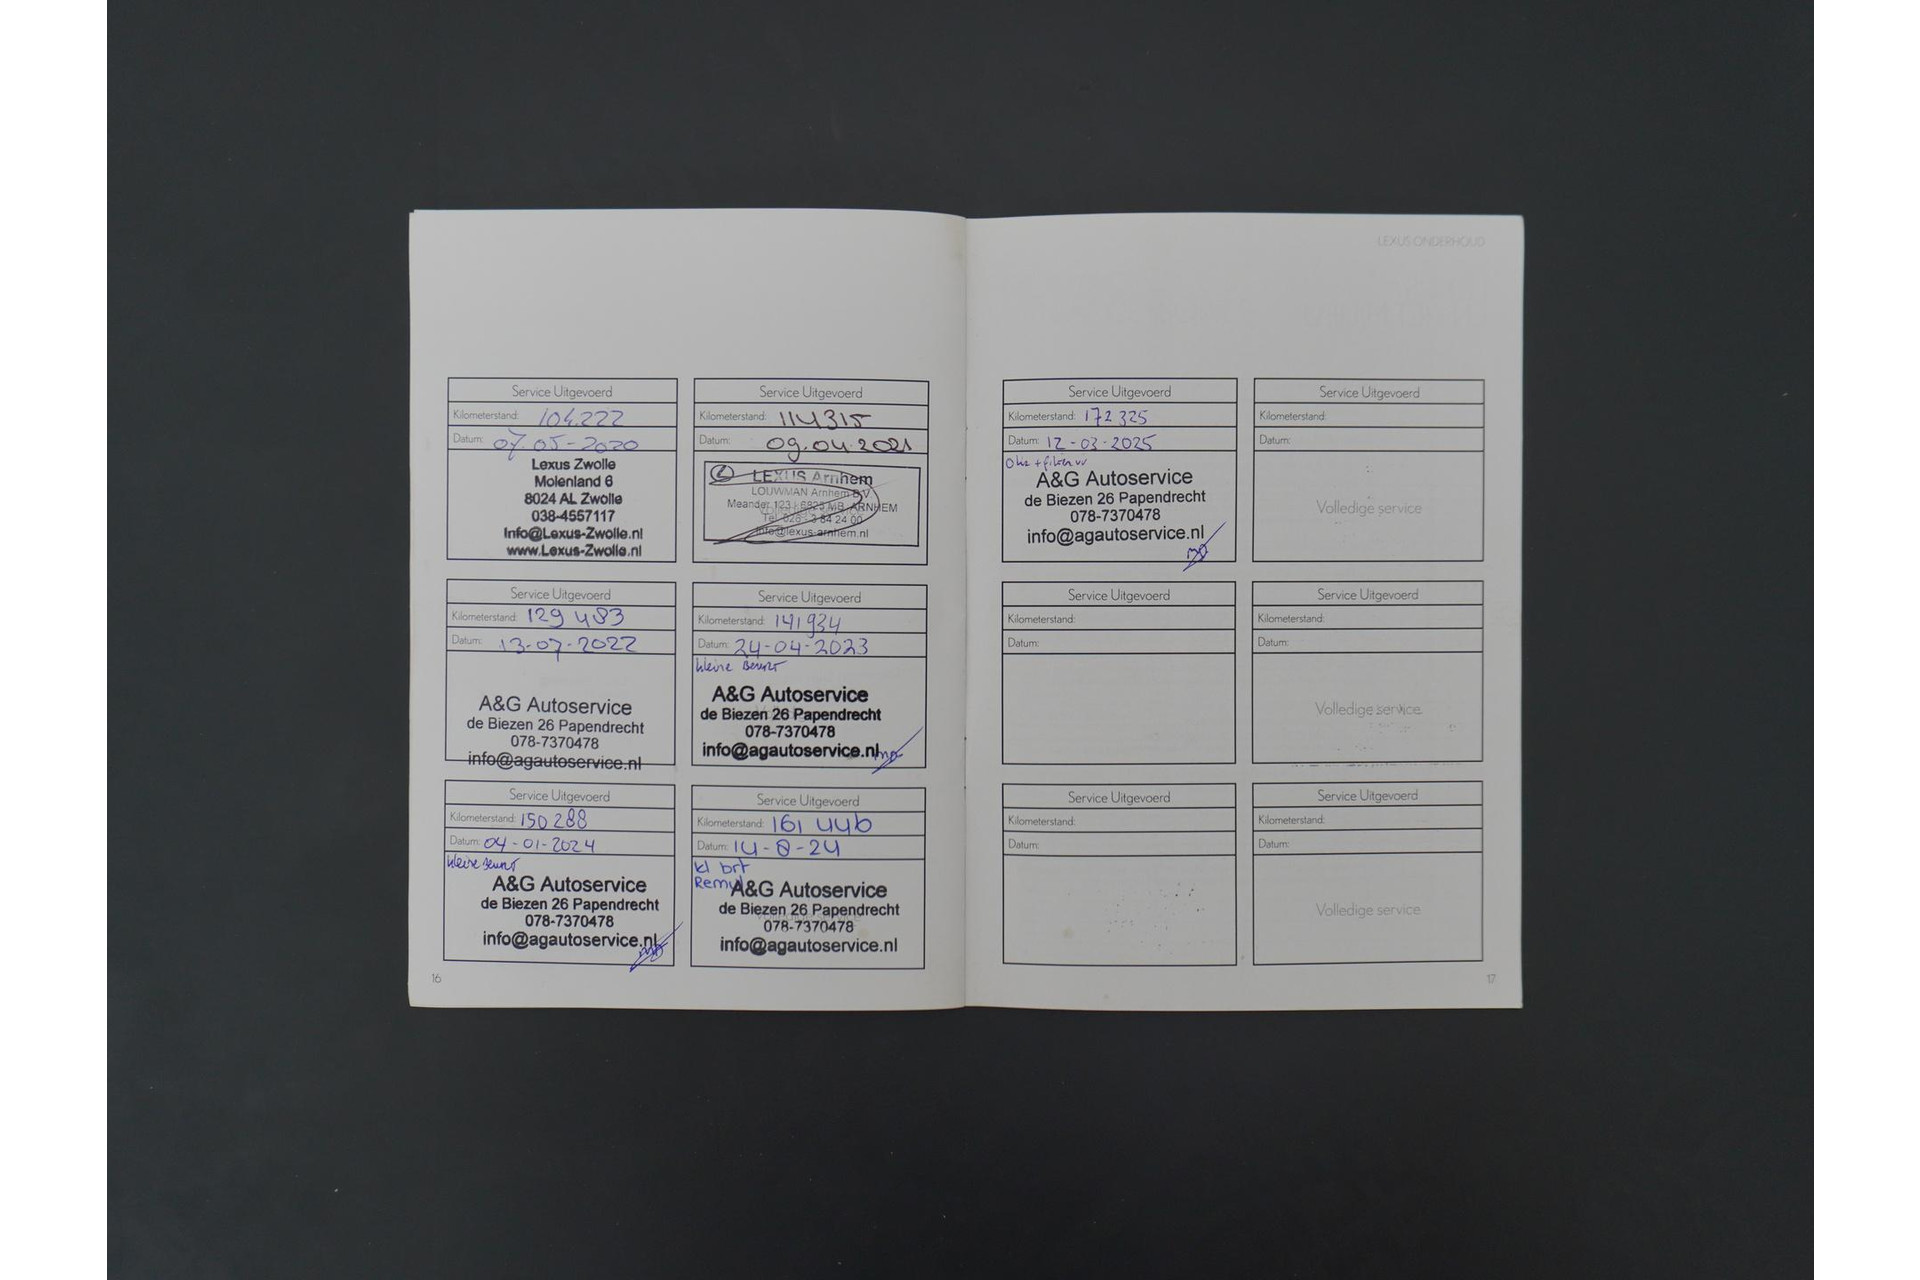 LEXUS ONDERHOUD
Service Uitgevoerd
Kilometerstand: 104.222
Datum: 07-05-2020
Lexus Zwolle
Molenland 6
8024 AL Zwolle
038-4557117
Info@Lexus-Zwolle.nl
www.Lexus-Zwolle.nl
Service Uitgevoerd
Kilometerstand: 114315
Datum: 09.04.2021
LEXUS Arnhem
LOUWMAN Arnhem B.V.
Meander 123 | 6825 MB ARNHEM
Tel. 026 - 3 84 24 00
info@lexus-arnhem.nl
Service Uitgevoerd
Kilometerstand: 129 483
Datum: 13-07-2022
A&G Autoservice
de Biezen 26 Papendrecht
078-7370478
info@agautoservice.nl
Service Uitgevoerd
Kilometerstand: 141934
Datum: 24-04-2023
kleine Beurt
A&G Autoservice
de Biezen 26 Papendrecht
078-7370478
info@agautoservice.nl
Service Uitgevoerd
Kilometerstand: 150 288
Datum: 04-01-2024
kleine Beurt
A&G Autoservice
de Biezen 26 Papendrecht
078-7370478
info@agautoservice.nl
Service Uitgevoerd
Kilometerstand: 161 446
Datum: 14-8-24
kl brt
A&G Autoservice
de Biezen 26 Papendrecht
078-7370478
info@agautoservice.nl
16
Service Uitgevoerd
Kilometerstand: 172 325
Datum: 12-03-2025
Olie +
A&G Autoservice
de Biezen 26 Papendrecht
078-7370478
info@agautoservice.nl
Service Uitgevoerd
Kilometerstand:
Datum:
Volledige service
Service Uitgevoerd
Kilometerstand:
Datum:
Service Uitgevoerd
Kilometerstand:
Datum:
Volledige service
Service Uitgevoerd
Kilometerstand:
Datum:
Service Uitgevoerd
Kilometerstand:
Datum:
Volledige service
17